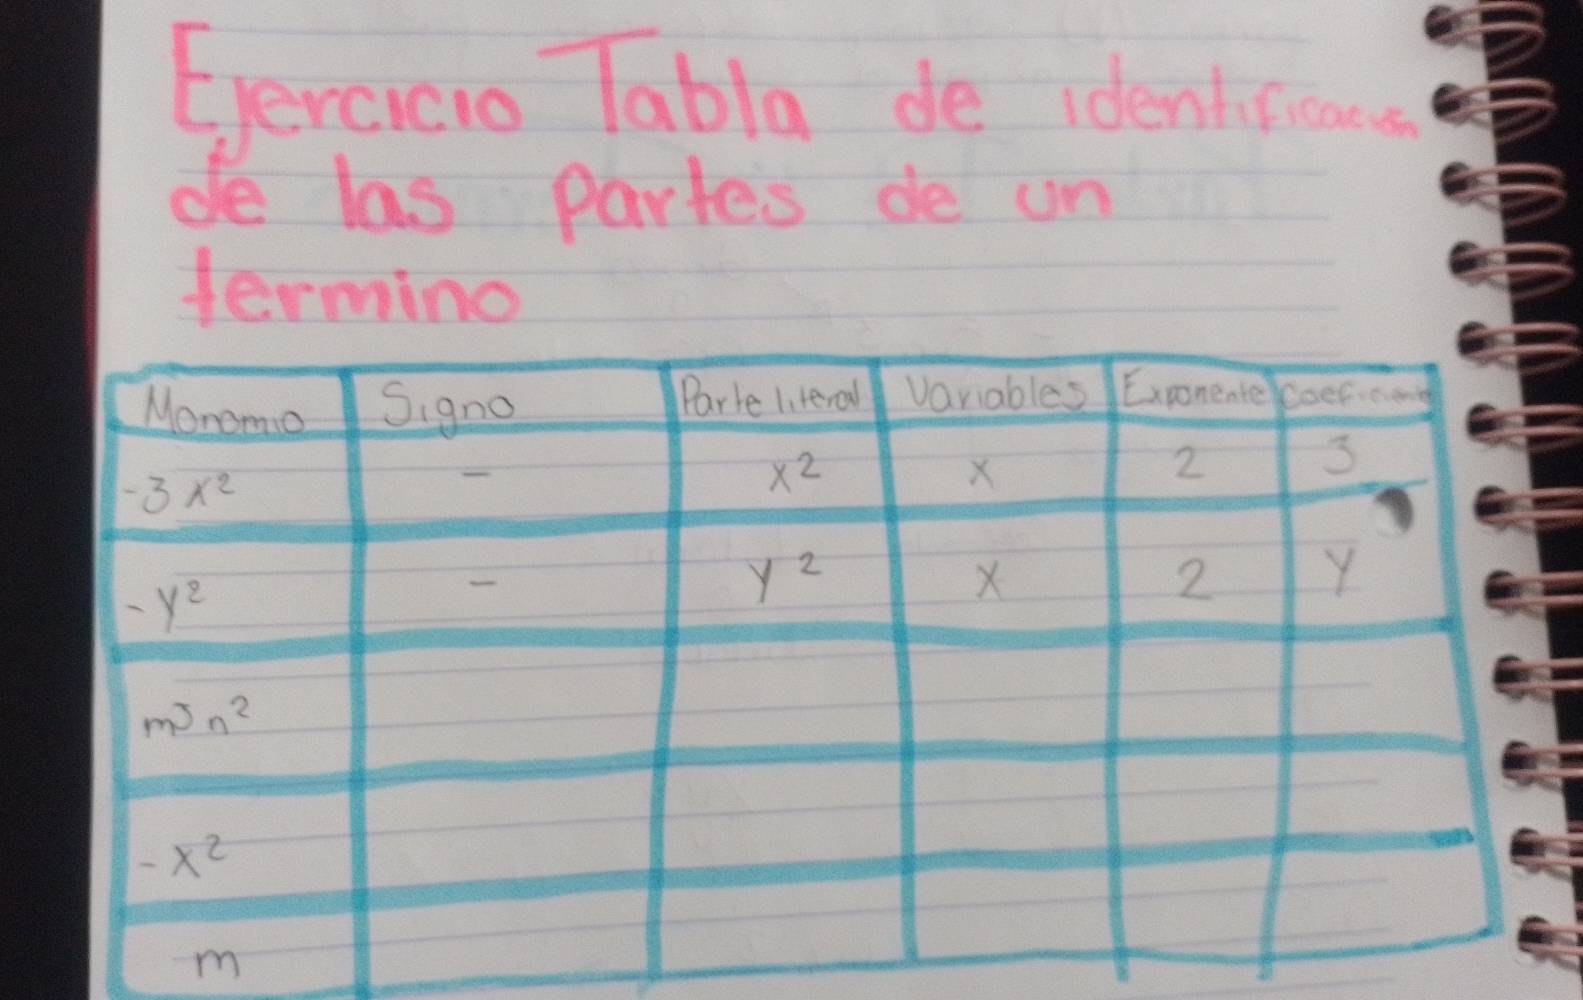 Ejercicio Tabla de identificación
de las Partes de un
termino
Monomio Signo Parte literal Variables Exponente Coeficiente
-3x² - x² x 2 3
-y² - y² x 2 y
n²
-x²
m